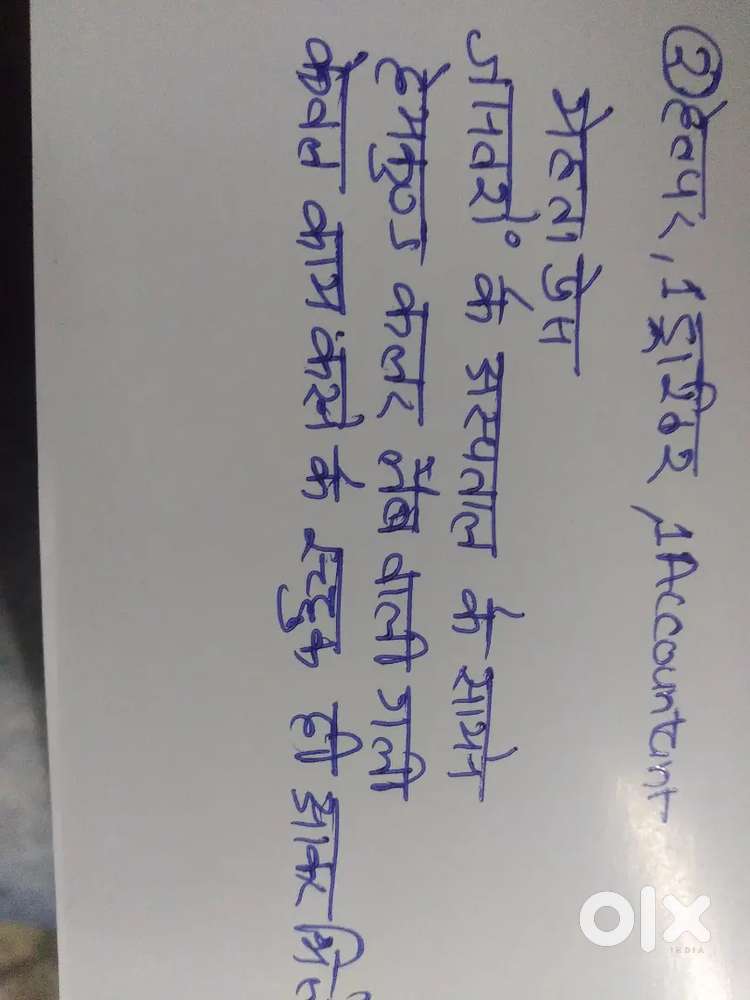 ② हेल्पर, 1 ड्राईवर, 1 Accountant
मेहता प्रेस
जानवरों के अस्पताल के सामने
हेमकुण्ड कलर लैब वाली गली
केवल काम करने के इच्छुक ही आकर
olx
INDIA